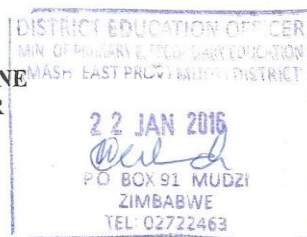 DISTRICT EDUCATION OFFICER
MIN OF PRIMARY & SECONDARY EDUCATION
NE
MASH EAST PROV MUDZI DISTRICT
R
22 JAN 2016
P O BOX 91 MUDZI
ZIMBABWE
TEL: 02722463